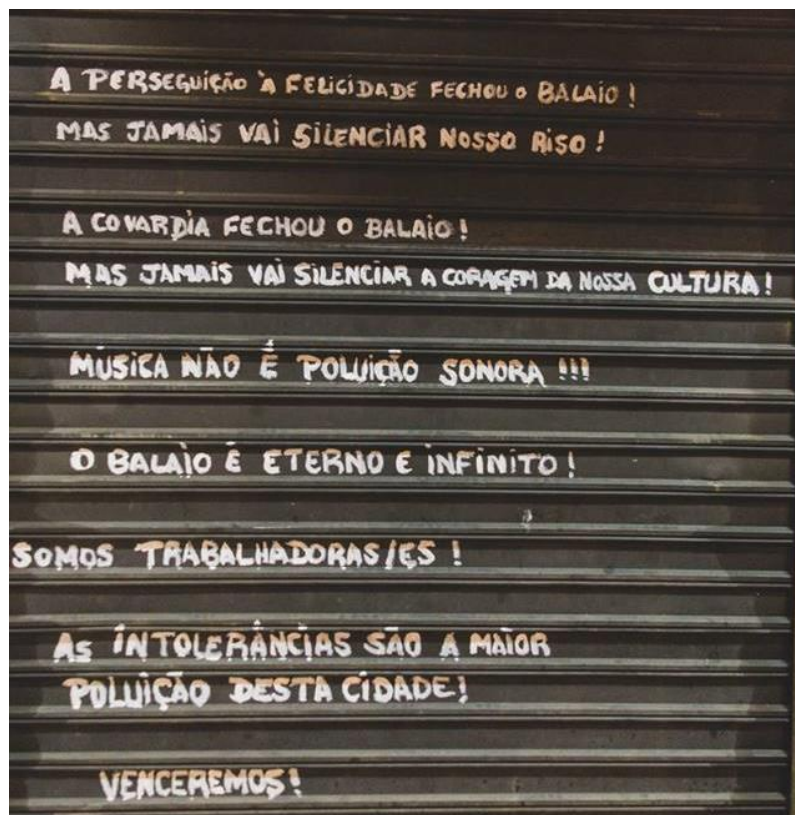 A PERSEGUIÇÃO À FELICIDADE FECHOU O BALAIO!
MAS JAMAIS VAI SILENCIAR NOSSO RISO!
A COVARDIA FECHOU O BALAIO!
MAS JAMAIS VAI SILENCIAR A CORAGEM DA NOSSA CULTURA!
MÚSICA NÃO É POLUIÇÃO SONORA!!!
O BALAIO É ETERNO E INFINITO!
SOMOS TRABALHADORAS/ES!
AS INTOLERÂNCIAS SÃO A MAIOR
POLUIÇÃO DESTA CIDADE!
VENCEREMOS!